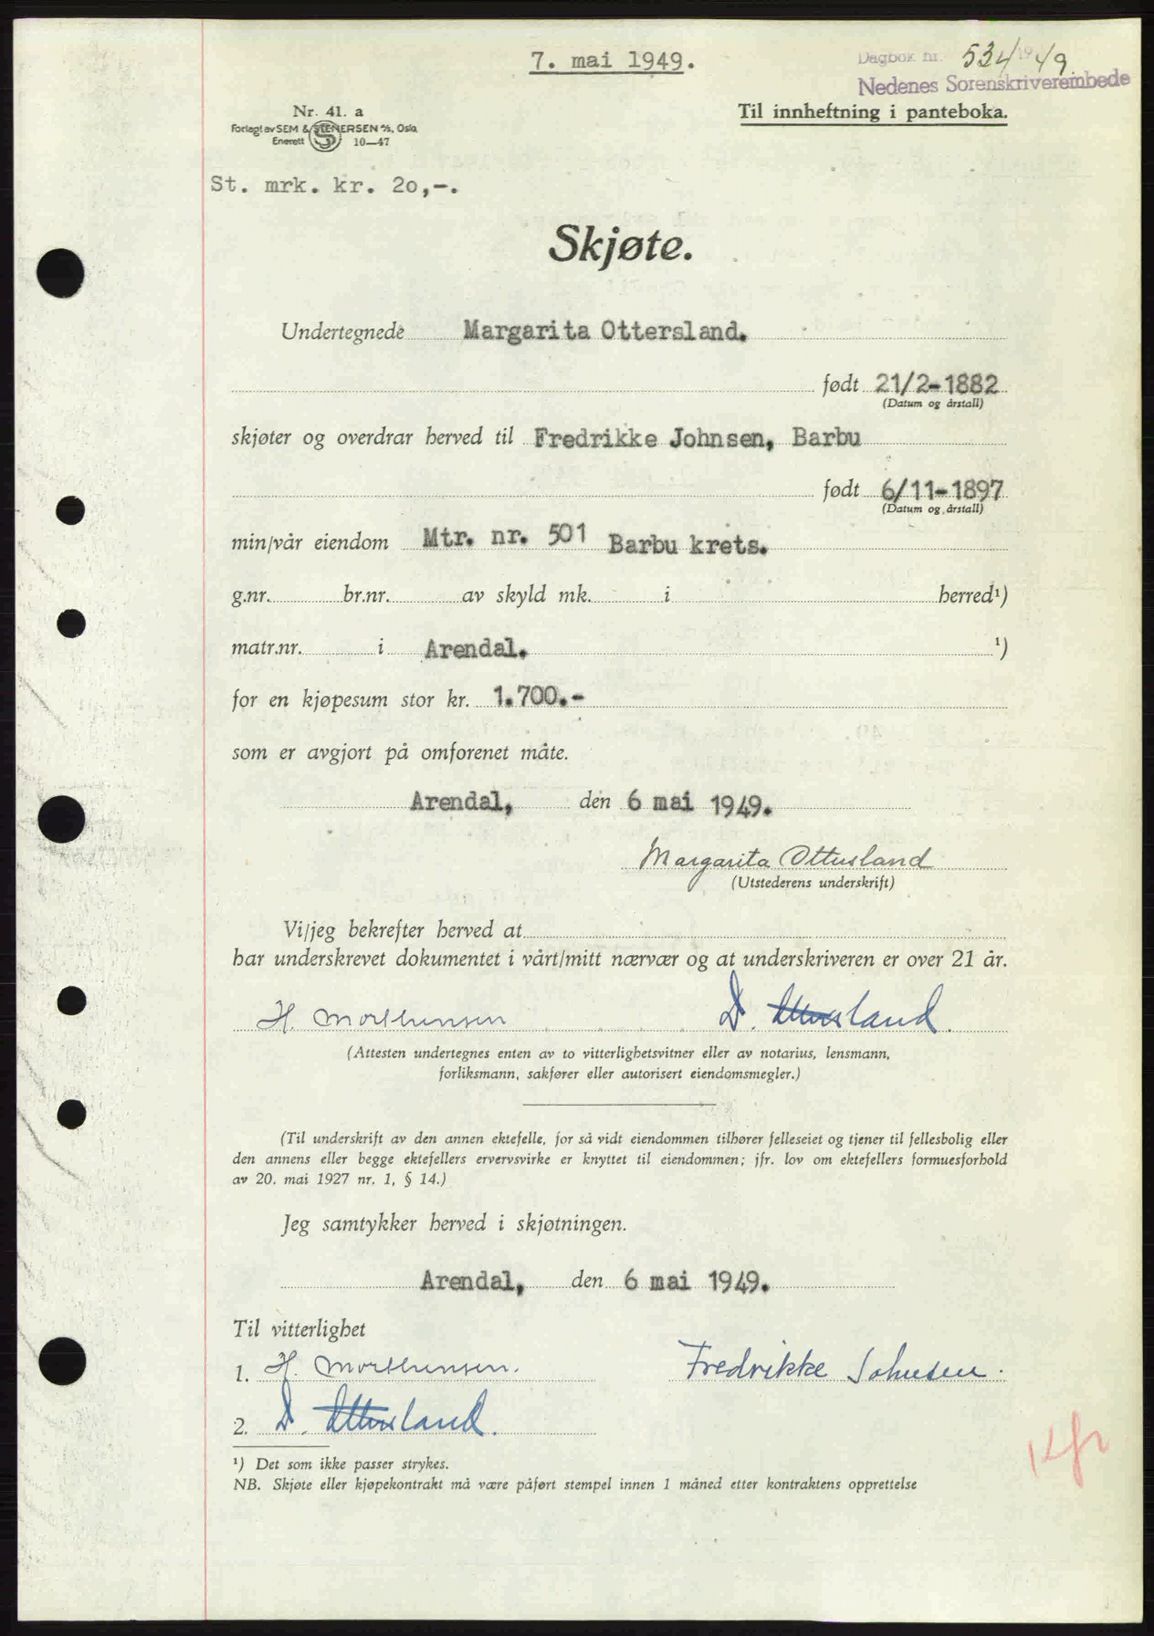 7. mai 1949.
Dagbok nr. 534 1949
Nedenes Sorenskriverembede
Nr. 41. a
Forlagt av SEM & STENERSEN A/S, Oslo
Enerett S 10—47
Til innheftning i panteboka.
St. mrk. kr. 20,-.
Skjøte.
Undertegnede Margarita Ottersland.
født 21/2-1882
(Datum og årstall)
skjøter og overdrar herved til Fredrikke Johnsen, Barbu
født 6/11-1897
(Datum og årstall)
min/vår eiendom Mtr. nr. 501 Barbu krets.
g.nr. br.nr. av skyld mk. i herred¹)
matr.nr. i Arendal. ¹)
for en kjøpesum stor kr. 1.700.-
som er avgjort på omforenet måte.
Arendal, den 6 mai 1949.
Margarita Ottersland
(Utstederens underskrift)
Vi/jeg bekrefter herved at
har underskrevet dokumentet i vårt/mitt nærvær og at underskriveren er over 21 år.
H. Morthensen D. Ottersland.
(Attesten undertegnes enten av to vitterlighetsvitner eller av notarius, lensmann,
forliksmann, sakfører eller autorisert eiendomsmegler.)
(Til underskrift av den annen ektefelle, for så vidt eiendommen tilhører felleseiet og tjener til fellesbolig eller
den annens eller begge ektefellers ervervsvirke er knyttet til eiendommen; jfr. lov om ektefellers formuesforhold
av 20. mai 1927 nr. 1, § 14.)
Jeg samtykker herved i skjøtningen.
Arendal, den 6 mai 1949.
Til vitterlighet
1. H. Morthensen. Fredrikke Johnsen.
2. D. Ottersland.
¹) Det som ikke passer strykes.
NB. Skjøte eller kjøpekontrakt må være påført stempel innen 1 måned etter kontraktens opprettelse